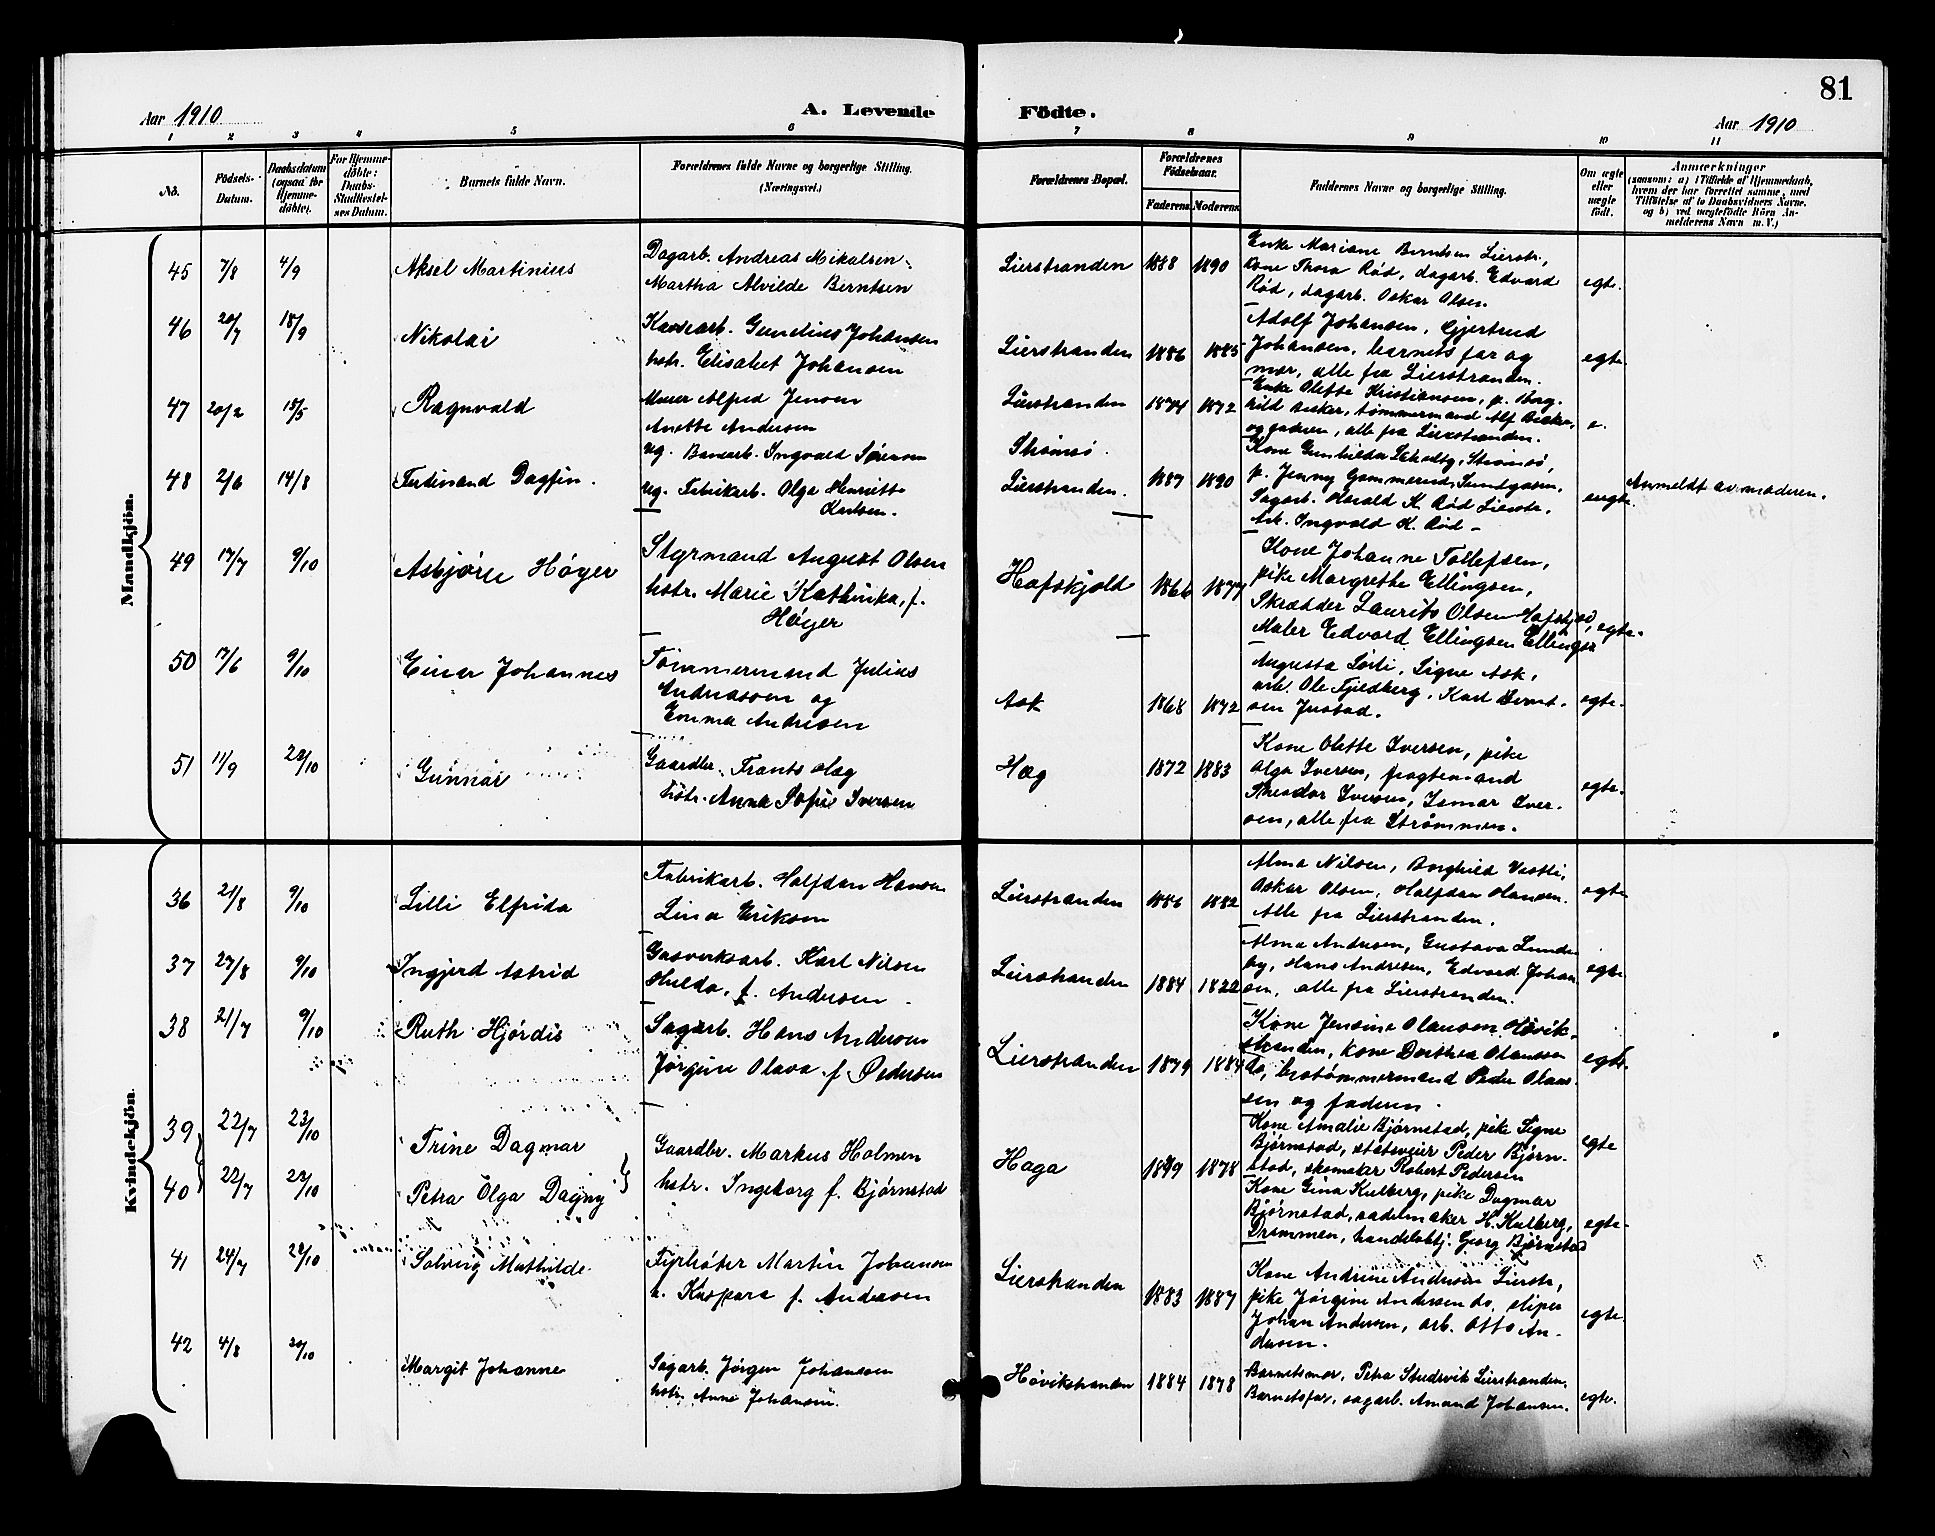 81
Aar 1910 A. Levende Födte. Aar 1910
1 2 3 4 5 6 7 8 9 10 11
No. Födsels-Datum. Daabsdatum (ogsaa for Hjemme-döbte). For Hjemme-döbte: Daabs-Stadfæstel-ses Datum. Barnets fulde Navn. Forældrenes fulde Navne og borgerlige Stilling. (Næringsvei.) Forældrenes Bopæl. Forældrenes Födselsaar. Faderens Moderens Faddernes Navne og borgerlige Stilling. Om ægte eller uægte födt. Anmærkninger (saasom: a) i Tilfælde af Hjemmedaab, hvem der har forrettet samme, med Tilföielse af to Daabsvidners Navne. og b) ved uægtefödte Börn An-melderens Navn m. V.)
Mandkjön.
45 7/8 4/9 Aksel Martinius
Dagarb. Andreas Mikalsen
Martha Alvilde Berntsen
Lierstranden 1888 1890
Enke Mariane Berntsen Lierstr.,
Kone Thora Rød, dagarb. Edvard
Rød, dagarb. Oskar Olsen
egte.
46 20/7 18/9 Nikolai
Gunelius Johansen
hstr. Elisabet Johansen
Lierstranden 1886 1885
Adolf Johansen, Gjertrud
Johansen, barnets far og
mor, alle fra Lierstranden.
egte
47 20/2 15/5 Ragnvald
Murer Alfred Jensen
Anette Andersen
Lierstranden 1874 1872
Enke Olette Kristiansen, p.
tømmermand Alf
og faderen, alle fra Lierstranden.
e.
48 2/6 14/8 Ferdinand Dagfin.
Ug. Banearb. Ingvald Sørensen
Ug. Fabrikarb. Olga Henriette
Karlsen.
Strømsø.
Lierstranden. 1887 1890
Kone Gunhilda Schultz, Strømsø,
p. Jenny Gommerud,
Sagarb. Harald K. Rød Lierstr.,
Arb. Ingvald K. Rød
uegte.
Anmeldt av moderen.
49 17/7 9/10 Asbjørn Høyer
Styrmand August Olsen
hstr. Marie Kathinka, f.
Høyer
Hafskjold 1866 1877
Kone Johanne Tollefsen,
pike Margrethe Ellingsen,
Skrædder Laurits Olsen
Maler Edvard Ellingsen
egte.
50 17/6 9/10 Einar Johannes
Tømmermand Julius
Andreassen og
Emma Andresen
Ask 1868 1872
Augusta Sørli, Signe Ask,
arb. Ole Fjeldberg, Karl Bernt-
sen Justad.
egte.
51 11/9 23/10 Gunnar
Gaardbr. Frants Hæg
hstr. Anna Sofie Iversen
Hæg 1872 1883
Kone Olette Iversen, pike
Olga Iversen, fragtemand
Theodor Iversen, Ismar Iver-
sen, alle fra Strømmen.
egte.
Kvindekjön.
36 21/8 9/10 Lilli Elfrida
Fabrikarb. Halfdan Hansen
Lina Eriksen
Lierstranden 1886 1882
Alma Nilsen, Borghild Vestli,
Oskar Olsen, Halfdan Hansen.
Alle fra Lierstranden.
egte
37 27/8 9/10 Ingjerd Astrid
Gasverksarb. Karl Nilsen
Hulda, f. Andersen
Lierstranden 1884 1822
Alma Andersen, Gustava Lunde-
by, Hans Andresen, Edvard Johan-
sen, alle fra Lierstranden.
egte
38 21/7 9/10 Ruth Hjørdis
Sagarb. Hans Andersen
Jørgine Olava f. Pedersen
Lierstranden 1879 1884
Kone Jensine Olaussen Høvik-
stranden, kone Dorthea Olaussen
do, tømmermand Peder Olaus-
sen og faderen.
egte.
39 22/7 23/10 Trine Dagmar
40 22/7 23/10 Petra Olga Dagny
Gaardbr. Markus Holmen
hstr. Ingeborg f. Bjørnstad
Haga 1879 1878
Kone Amalie Bjørnstad, pike Signe
Bjørnstad, Peder Bjørn-
stad, skomaker Robert Pedersen
egte
Kone Gina Kulberg, pike Dagmar
Bjørnstad, sadelmaker H. Kulberg,
Drammen, handelsbtj. Georg Bjørnstad
egte
41 24/7 29/10 Solveig Mathilde
Fyrbøter Martin Johansen
h. Kaspara f. Andersen
Lierstranden 1883 1887
Kone Andrine Andersen Lierstr,
pike Jørgine Andersen do, sliper
Johan Andersen, arb. Otto An-
dersen.
egte
42 4/8 20/10 Margit Johanne
Sagarb. Jørgen Johansen
hstr. Anne Johansen.
Høvikstranden 1884 1878
Barnetsmor, Petra Lierstranden.
Barnetsfar, sagarb. Amand Johansen.
egte.